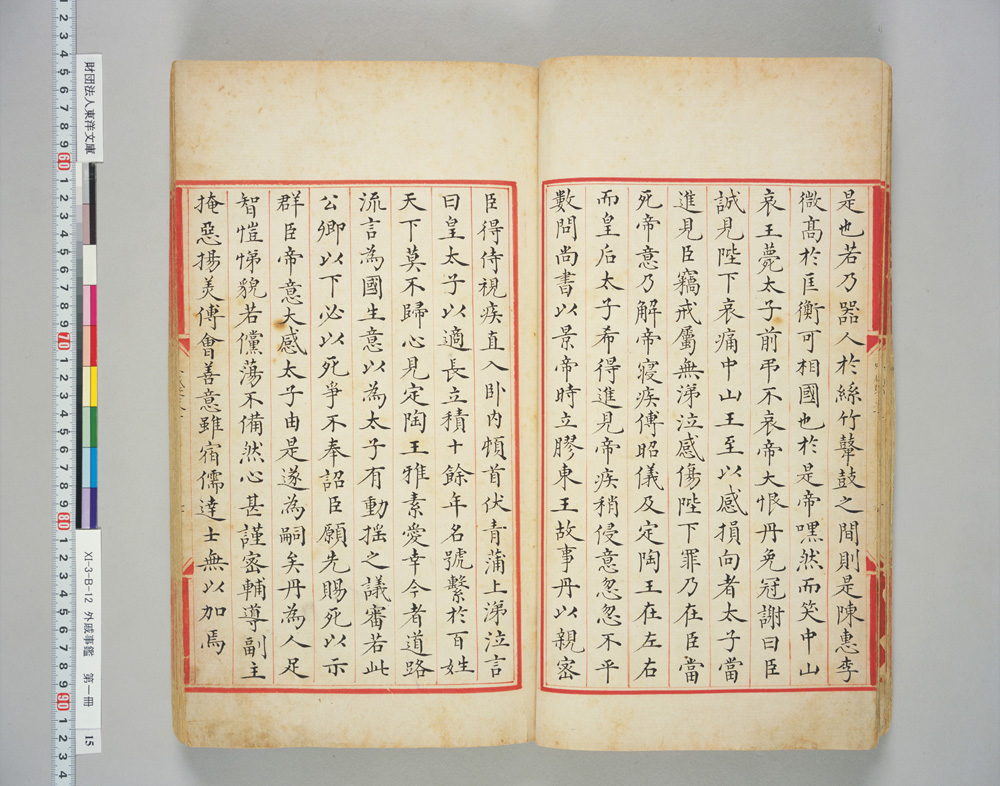 是也若乃器人於絲竹鼙鼓之間則是陳惠李
微髙於匡衡可相國也於是帝嘿然而笑中山
哀王薨太子前弔不哀帝大恨丹免冠謝曰臣
誠見陛下哀痛中山王至以感損向者太子當
進見臣竊戒屬無涕泣感傷陛下罪乃在臣當
死帝意乃解帝寢疾傅昭儀及定陶王在左右
而皇后太子希得進見帝疾稍侵意忽忽不平
數問尚書以景帝時立膠東王故事丹以親密
臣得侍視疾直入卧内頓首伏青蒲上涕泣言
曰皇太子以適長立積十餘年名號繫於百姓
天下莫不歸心見定陶王雅素愛幸今者道路
流言為國生意以為太子有動揺之議審若此
公卿以下必以死爭不奉詔臣願先賜死以示
群臣帝意大感太子由是遂為嗣矣丹為人足
智愷悌貌若儻蕩不備然心甚謹密輔導副主
掩惡揚美傅會善意雖宿儒達士無以加焉
財団法人東洋文庫
XI-3-B-12 外戚事鑑 第一冊 15
2 3 4 5 6 7 8 9 60 1 2 3 4 5 6 7 8 9 70 1 2 3 4 5 6 7 8 9 80 1 2 3 4 5 6 7 8 9 90 1 2 3 4